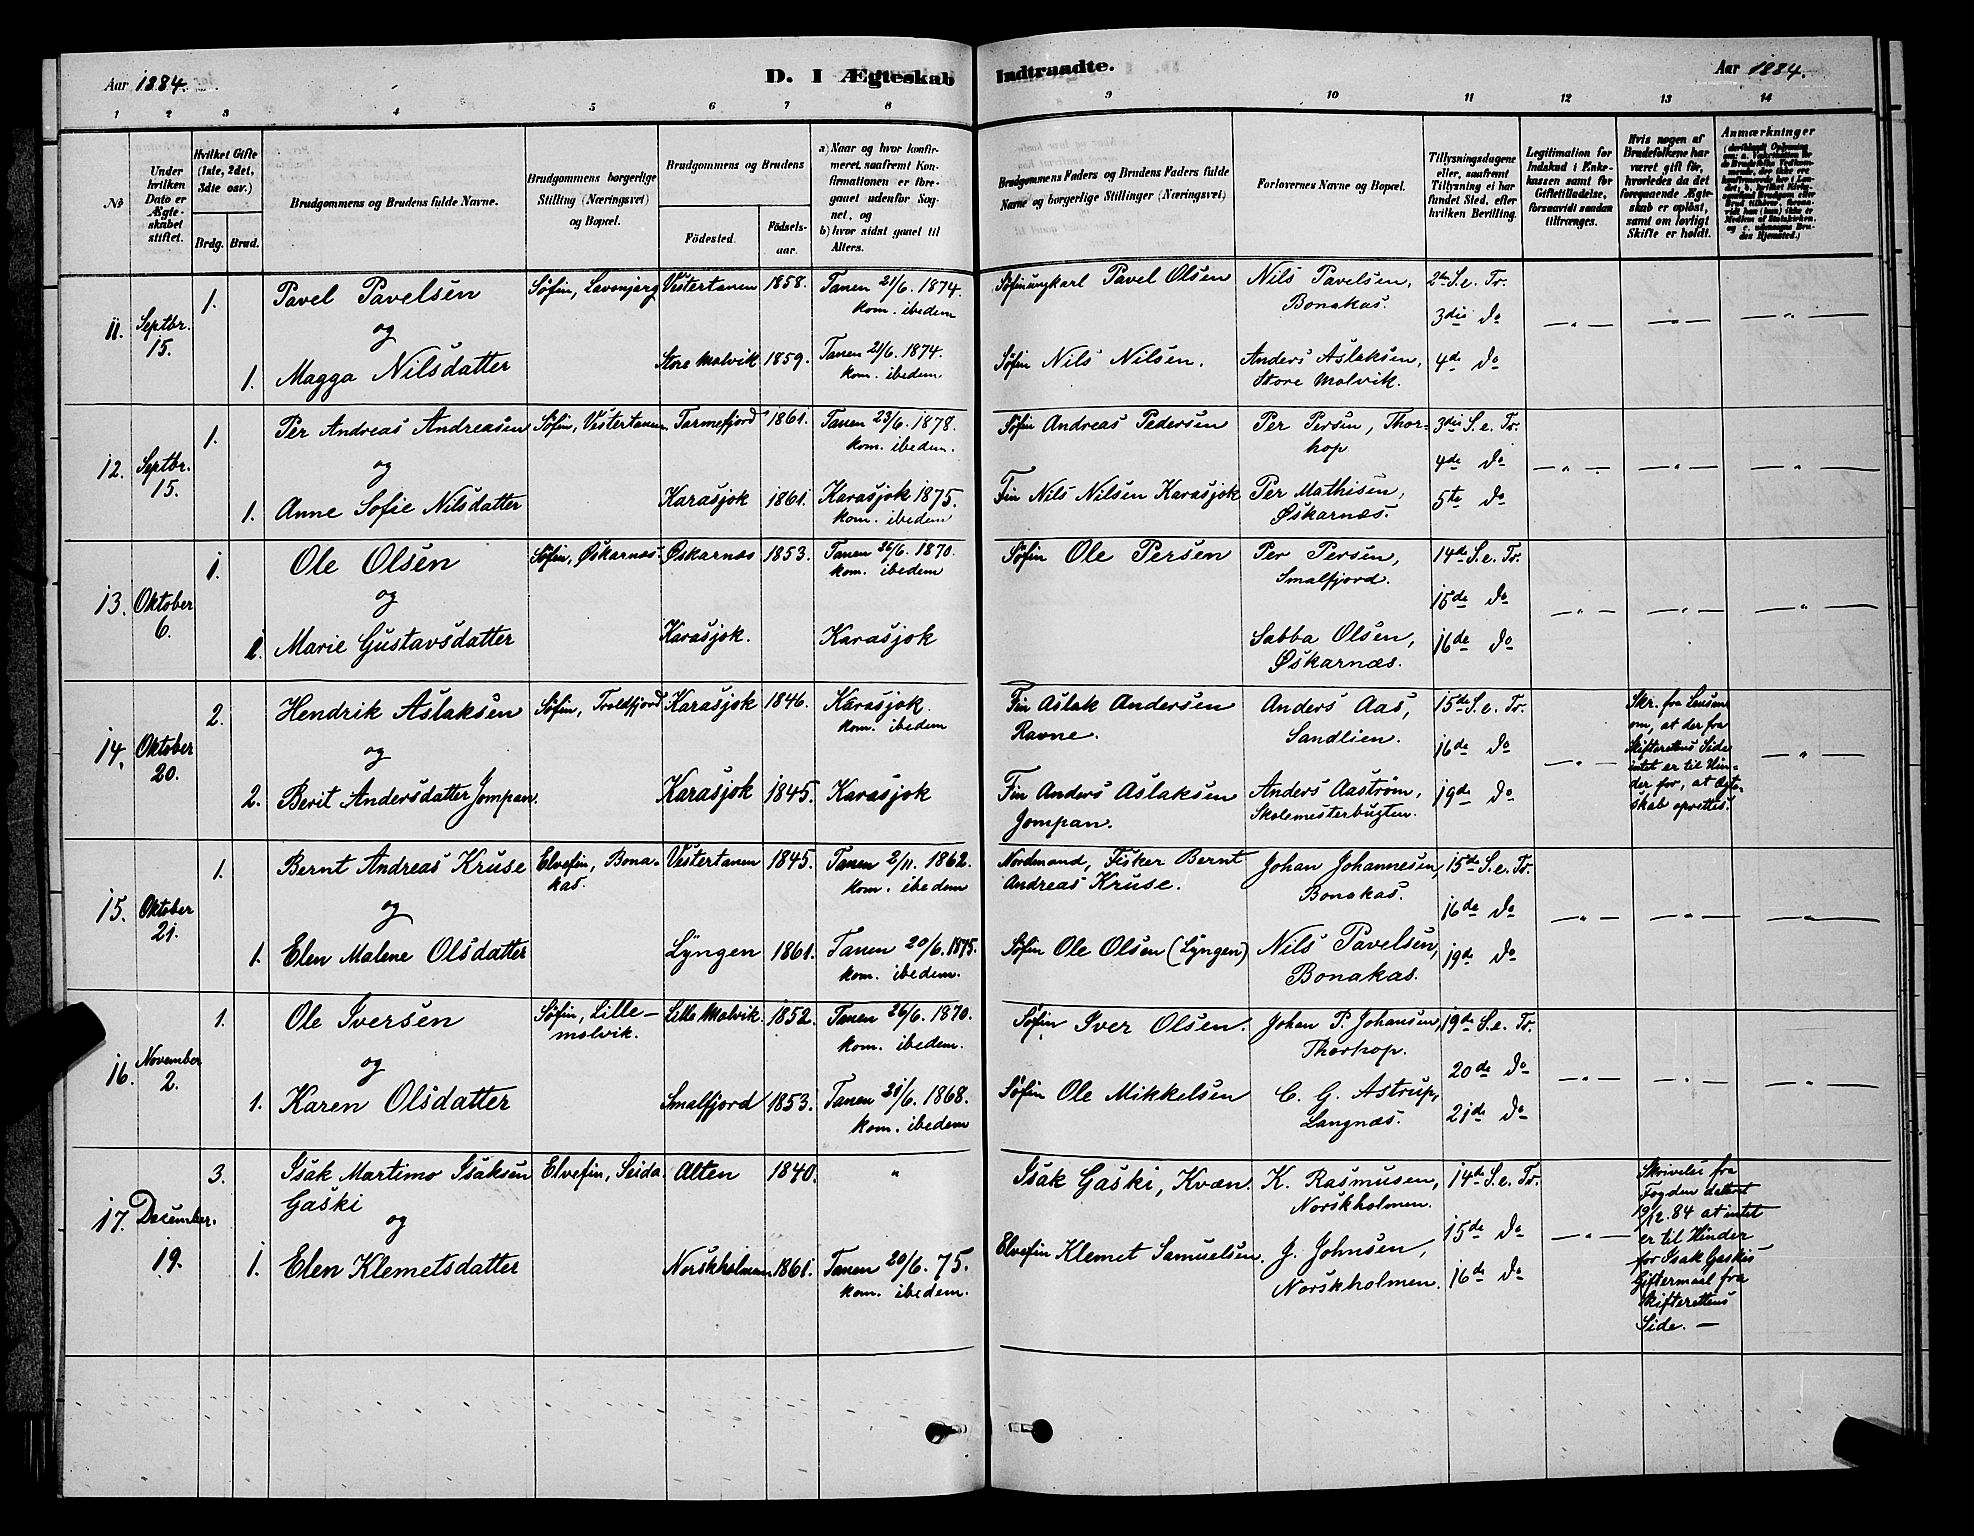 Aar 1884.
D. I Ægteskab Indtraadte.
Aar 1884.
1 2 3 4 5 6 7 8 9 10 11 12 13 14
No
Under hvilken Dato er Ægteskabet stiftet.
Hvilket Gifte (1ste, 2det, 3dte osv.)
Brdg. Brud.
Brudgommens og Brudens fulde Navne.
Brudgommens borgerlige Stilling (Næringsvei) og Bopæl.
Brudgommens og Brudens
Födested.
Födsels-aar.
a) Naar og hvor konfirmeret, saafremt Konfirmationen er foregaaet udenfor Sognet, og
b) hvor sidst gaaet til Alters.
Brudgommens Faders og Brudens Faders fulde Navne og borgerlige Stillinger (Næringsvei)
Forlovernes Navne og Bopæl.
Tillysningsdagene eller, saafremt Tillysning ei har fundet Sted, efter hvilken Bevilling.
Legitimation for Indskud i Enkekassen samt for Giftetilladelse, forsaavidt saadan tiltrænges.
Hvis nogen af Brudefolkene har været gift før, hvorledes da det foregaaende Ægteskab er oplöst, samt om lovligt Skifte er holdt.
Anmærkninger
11. Septbr. 15. 1. Pavel Pavelsen Søfin, Lavonjarg Vestertanen 1858. Tanen 21/6. 1874. kom. ibedem Søfinungkarl Pavel Olsen Nils Pavelsen, Bonakas. 2den S. e. Tr.
og 3die do
1. Magga Nilsdatter Store Molvik 1859. Tanen 21/6. 1874. kom. ibedem Søfin Nils Nilsen. Anders Aslaksen, Store Molvik. 4de do
12. Septbr. 15. 1. Per Andreas Andreasen Søfin, Vestertanen. Tarmefjord 1861. Tanen 23/6. 1878. kom. ibedem. Søfin Andreas Pedersen Per Persen, Thorhop 3die S. e. Tr.
og 4de do
1. Anne Sofie Nilsdatter Karasjok 1861. Karasjok 1875. kom. ibedem Fin Nils Nilsen Karasjok Per Mathisen, Øskarnæs. 5te do
13. Oktober 6. 1. Ole Olsen Søfin, Øskarnæs. Øskarnæs 1853. Tanen 26/6. 1870. kom. ibedem Søfin Ole Persen Per Persen, Smalfjord. 14de S. e. Tr.
og 15de do
Marie Gustavsdatter Karasjok. Karasjok Sabba Olsen, Øskarnæs. 16de do
14. Oktober 20. 2. Hendrik Aslaksen Søfin, Troldfjord Karasjok 1846. Karasjok. kom. ibedem Fin Aslak Andersen Ravne. Anders Aas, Sandlien. 15de S. e. Tr. Skr. fra Lensm. om, at der fra Skifterettens Side intet er til Hinder for, at Ægteskab oprettes.
og 16de do
2. Berit Andersdatter Jompan. Karasjok 1845. Karasjok Fin Anders Aslaksen Jompan. Anders Aastrøm, Skolemesterbugten. 19de do
15. Oktober 21. 1. Bernt Andreas Kruse Elvefin, Bonakas. Vestertanen 1845. Tanen 2/11. 1862. kom. ibedem Nordmand, Fisker Bernt Andreas Kruse. Johan Johannesen, Bonakas. 15de S. e. Tr.
og 16de do
1. Elen Malene Olsdatter Lyngen 1861. Tanen 20/6. 1875. kom. ibedem. Søfin Ole Olsen (Lyngen) Nils Pavelsen, Bonakas. 19de do
16. November 2. 1. Ole Iversen Søfin, Lillemolvik. Lille Molvik. 1852. Tanen 26/6. 1870. kom. ibedem. Søfin Iver Olsen. Johan P. Johansen, Thorhop. 19de S. e. Tr.
og 20de do
1. Karen Olsdatter Smalfjord 1853. Tanen 21/6. 1868. kom. ibedem Søfin Ole Mikkelsen C. G. Astrup, Langnæs. 21de do
17. December. 19. 3. Isak Martimo Isaksen Gaski Elvefin, Seida. Alten 1840. " Isak Gaski, Kvæn. K. Rasmusen, Norskholmen. 14de S. e. Tr. Skrivelse fra Fogden dateret 19/12. 84 at intet er til Hinder for Isak Gaskis Giftermaal fra Skifterettens Side. —
og 15de do
1. Elen Klemetsdatter Norskholmen 1861. Tanen 20/6. 75. kom. ibedem. Elvefin Klemet Samuelsen. J. Johnsen, Norskholmen. 16de do